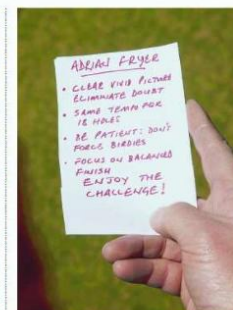 ADRIAN FRYER
• CLEAR VIVID PICTURE
ELIMINATE DOUBT
• SAME TEMPO FOR
18 HOLES
• BE PATIENT: DON'T
FORCE BIRDIES
• FOCUS ON BALANCED
FINISH
ENJOY THE
CHALLENGE!